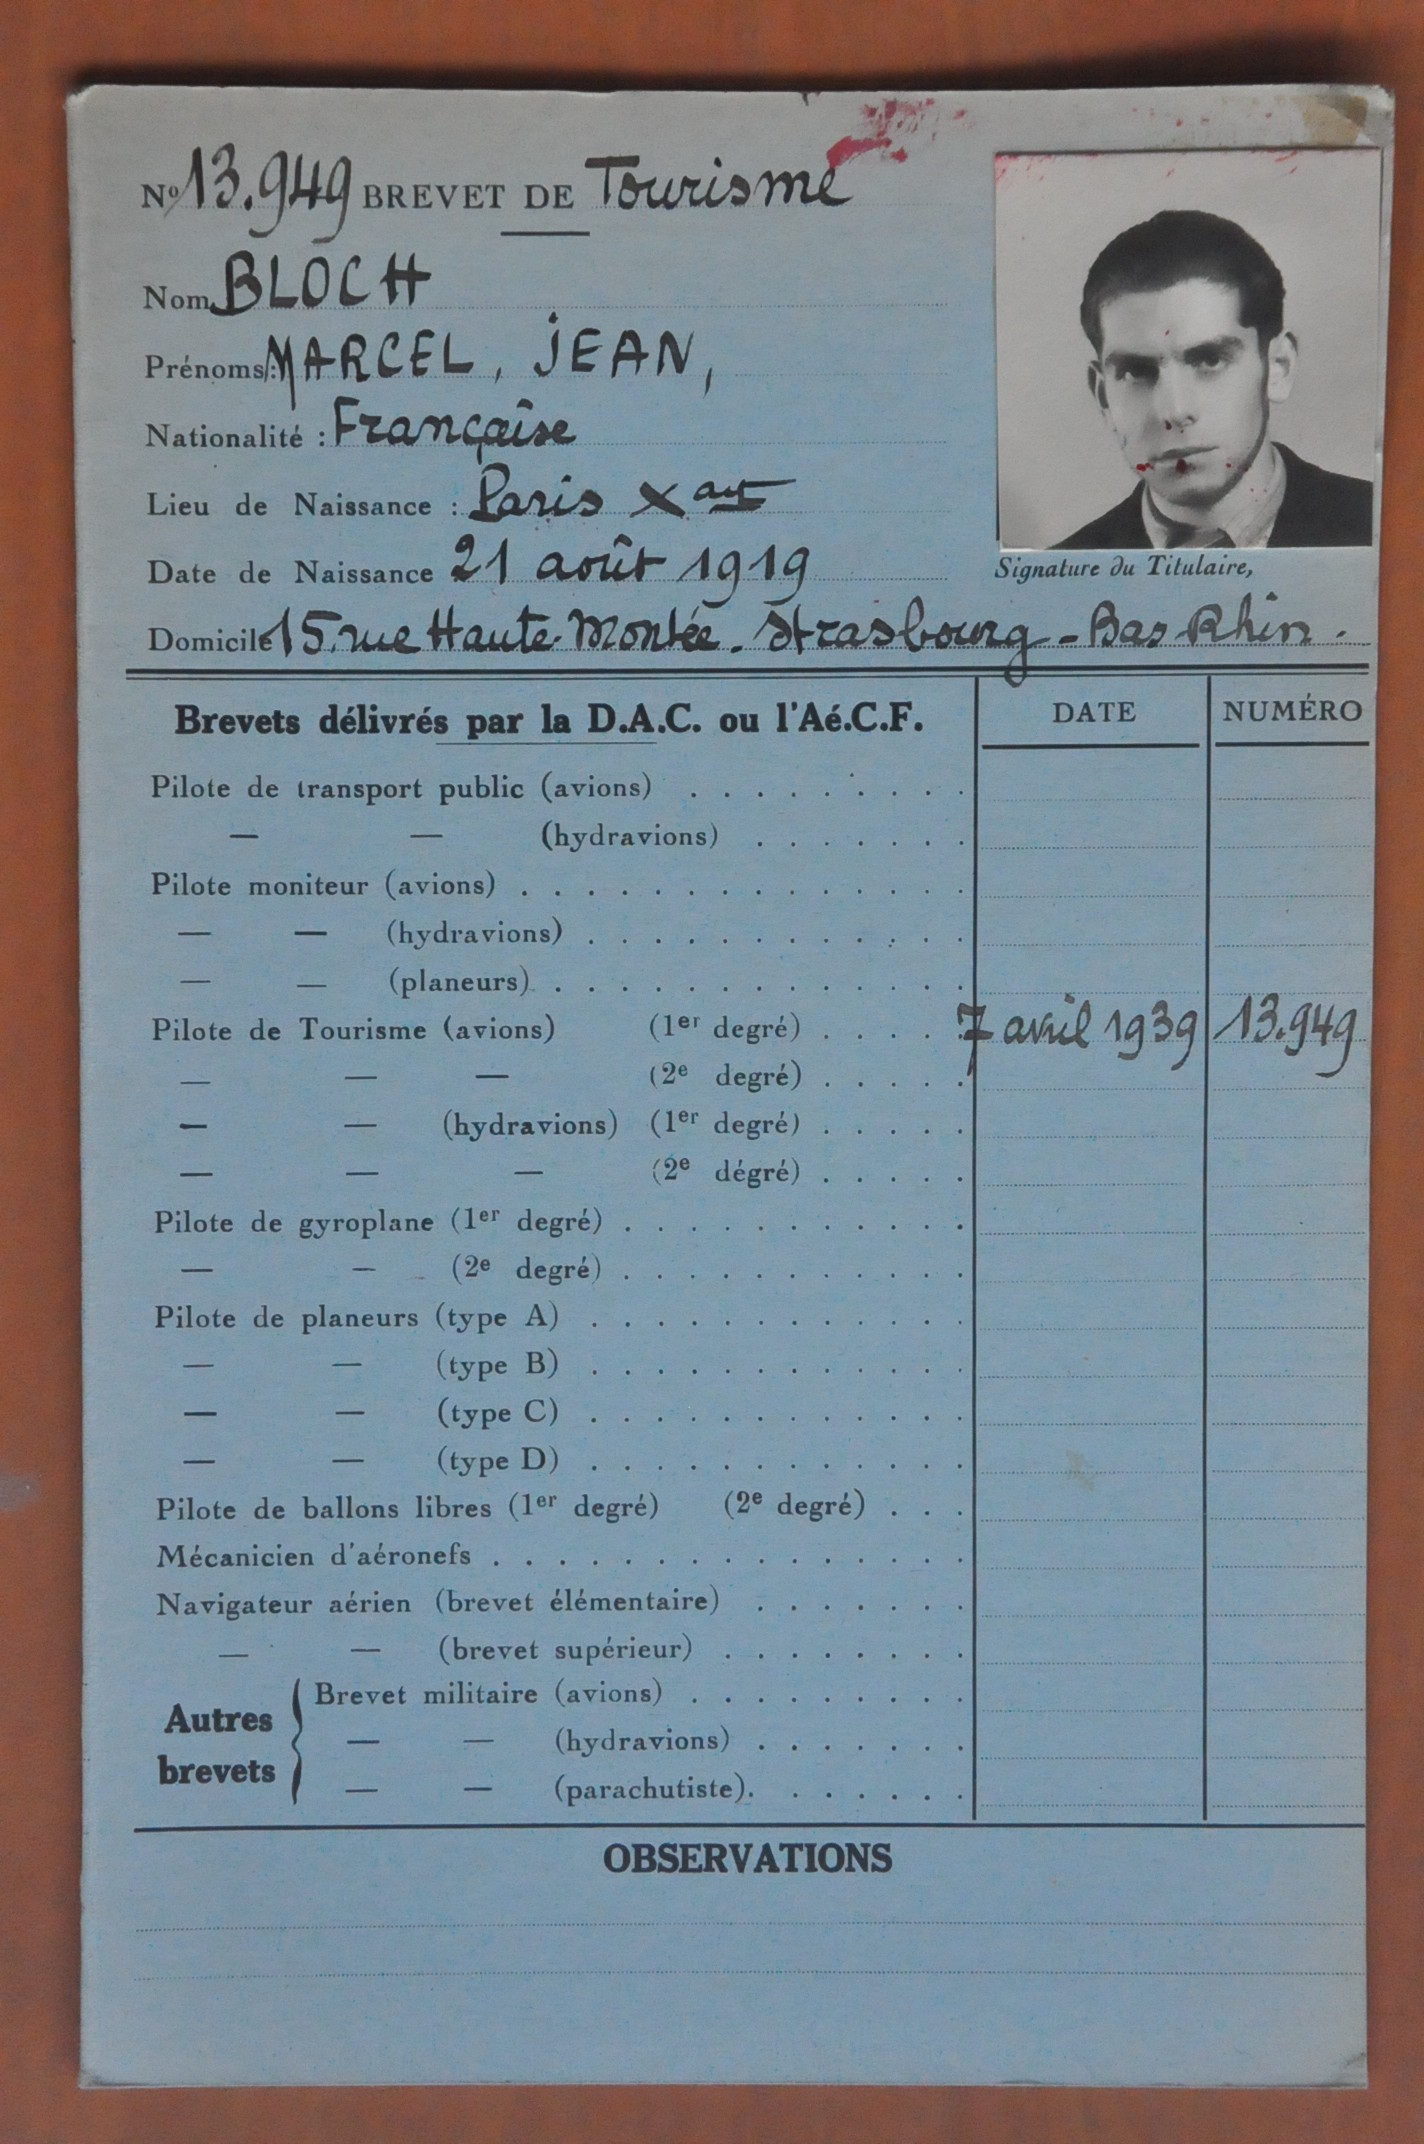 No 13.949 BREVET DE Tourisme
Nom BLOCH
Prénoms: MARCEL, JEAN,
Nationalité : Française
Lieu de Naissance : Paris X art
Date de Naissance 21 août 1919
Signature du Titulaire,
Domicile 15. rue Haute-Montée. Strasbourg - Bas Rhin.
Brevets délivrés par la D.A.C. ou l'Aé.C.F. DATE NUMÉRO
Pilote de transport public (avions) . . . . . . . . .
— — (hydravions) . . . . . . .
Pilote moniteur (avions) . . . . . . . . . . . . . .
— — (hydravions) . . . . . . . . . . . .
— — (planeurs) . . . . . . . . . . . . .
Pilote de Tourisme (avions) (1er degré) . . . . . 7 avril 1939 13.949
— — — (2e degré) . . . . .
— — (hydravions) (1er degré) . . . . .
— — — (2e dégré) . . . . .
Pilote de gyroplane (1er degré) . . . . . . . . . . .
— — (2e degré) . . . . . . . . . . .
Pilote de planeurs (type A) . . . . . . . . . . . .
— — (type B) . . . . . . . . . . . .
— — (type C) . . . . . . . . . . . .
— — (type D) . . . . . . . . . . . .
Pilote de ballons libres (1er degré) (2e degré) . . .
Mécanicien d'aéronefs . . . . . . . . . . . . . . .
Navigateur aérien (brevet élémentaire) . . . . . . .
— — (brevet supérieur) . . . . . . . .
Autres brevets { Brevet militaire (avions) . . . . . . . . .
— — (hydravions) . . . . . . .
— — (parachutiste). . . . . . .
OBSERVATIONS